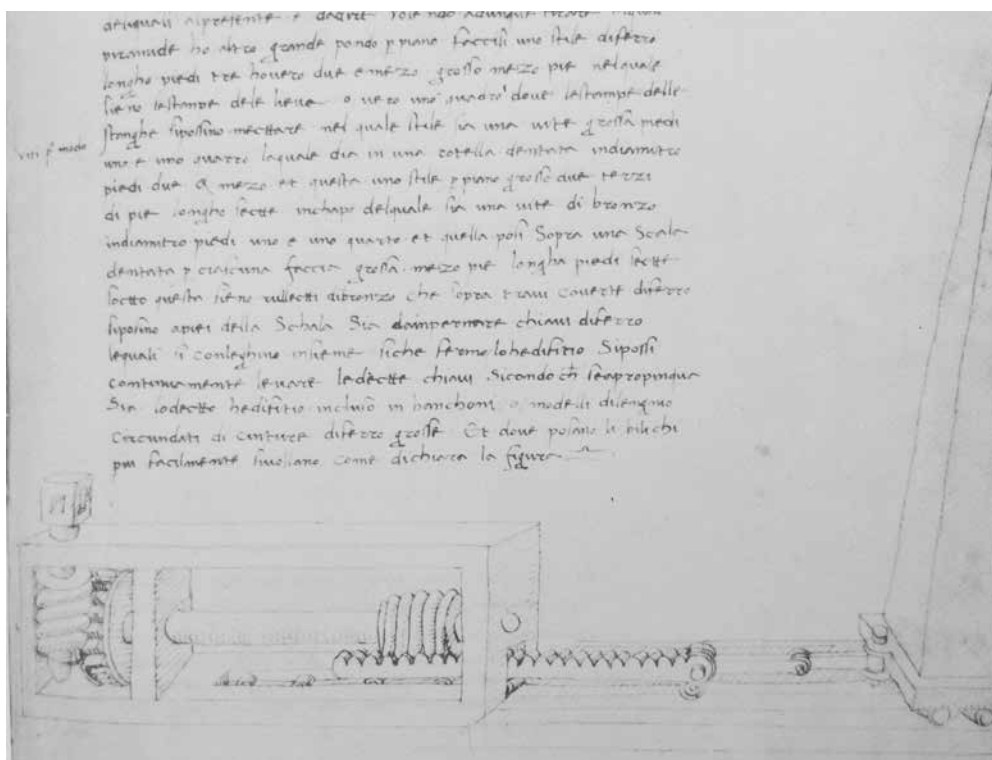 delquali alpresente e dacrite volendo adunque tirare
piramide ho altro grande pondo p piano faccisi uno stile diferro
longho piedi tre hovero due e mezzo grosso mezo pie nelquale
sieno lestampe dele lieve o vero uno quadro dove lestampe delle
stanghe sipossino mecttare nel quale stile sia una vite grossa piedi
viii p modo
uno e uno quarto laquale dia in una rotella dentata indiamitro
piedi due & mezo et questa uno stile p piano grosso due terzi
di pie longho sectte inchapo delquale sia una vite di bronzo
indiamitro piedi uno e uno quarto et quella posi Sopra una Scala
dentata p ciaschuna faccia grossa mezo pie longha piedi sectte
soctto questa sieno rullectti dibronzo che sopra travi coverte diferro
siposino apiei della Schala Sia dainpernare chiavi diferro
lequali si conleghino insieme siche fermo lohedifitio Sipossi
continuamente levare ledectte chiavi Sicondo ch seapropinqua
Sia lodectto hedifitio incluso in banchoni o modelli dilengnio
Circundati di cinture diferro grosse Et dove posano li bilichi
piu facilmente sivoltano come dichiara la figura